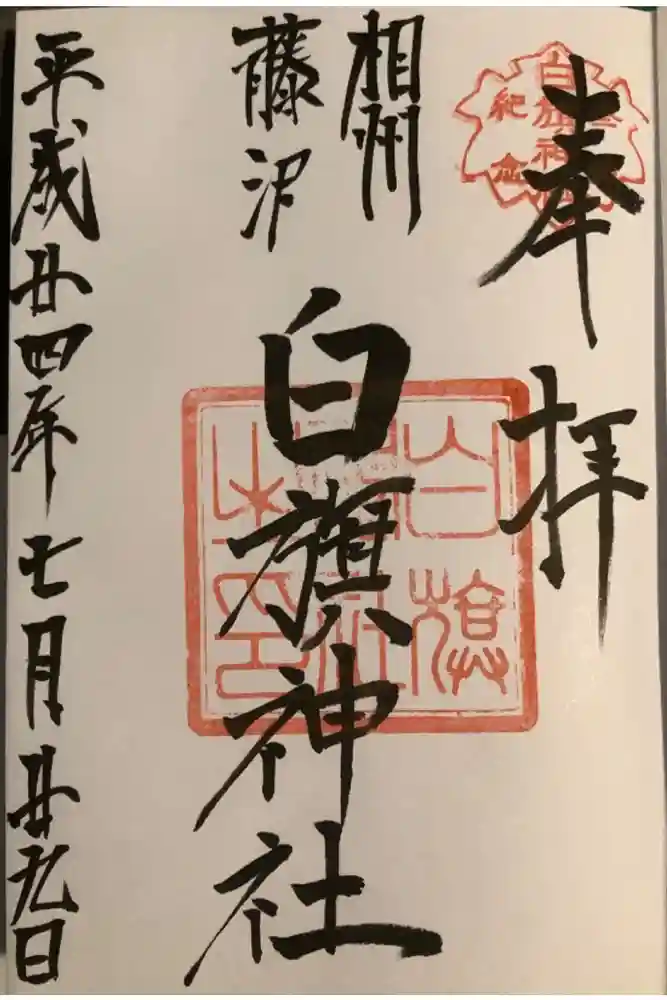 奉拝
白旗神社
紀念
相州
藤沢
白旗神社
白旗
神社
之印
平成廿四年七月廿九日